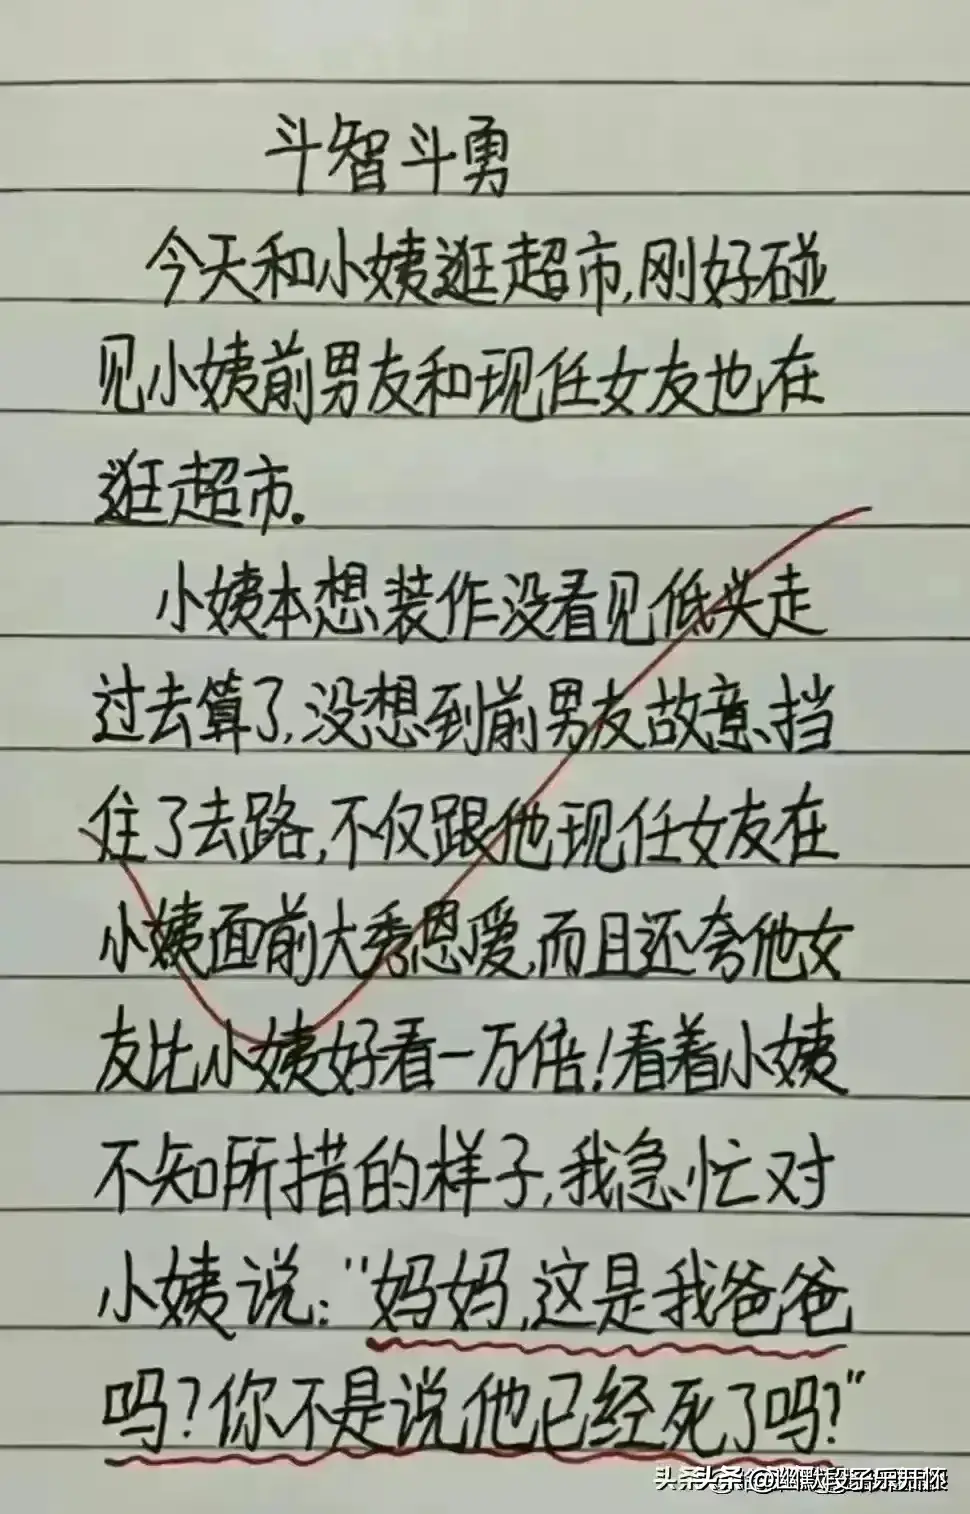 斗智斗勇
今天和小姨逛超市,刚好碰
见小姨前男友和现任女友也在
逛超市.
小姨本想装作没看见低头走
过去算了,没想到前男友故意挡
住了去路,不仅跟他现任女友在
小姨面前大秀恩爱,而且还夸他女
友比小姨好看一万倍!看着小姨
不知所措的样子,我急忙对
小姨说:"妈妈,这是我爸爸
吗?你不是说他已经死了吗?"
头条 @幽默段子乐开怀